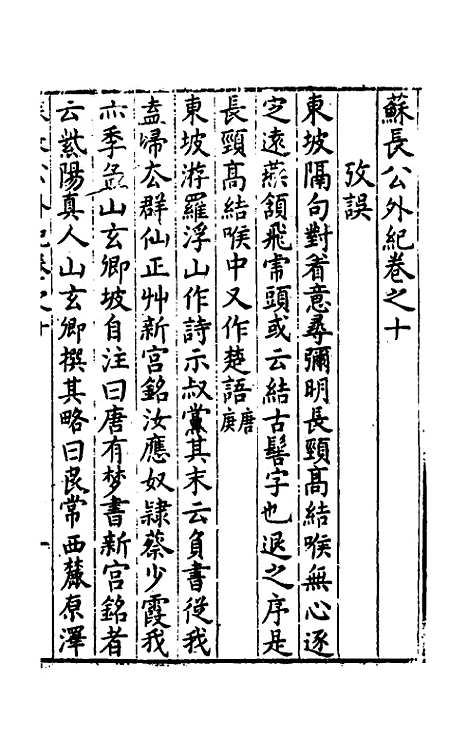 蘇長公外紀卷之十
攷誤
東坡隔句對着意尋彌明長頸高結喉無心逐
定遠燕頷飛虎頭或云結古髻字也退之序是
長頸高結喉中又作楚語唐庚
東坡游羅浮山作詩示叔黨其末云負書從我
盍歸去群仙正艸新宮銘汝應奴隸蔡少霞我
亦季孟山玄卿坡自注曰唐有夢書新宮銘者
云紫陽真人山玄卿撰其略曰良常西麓原澤